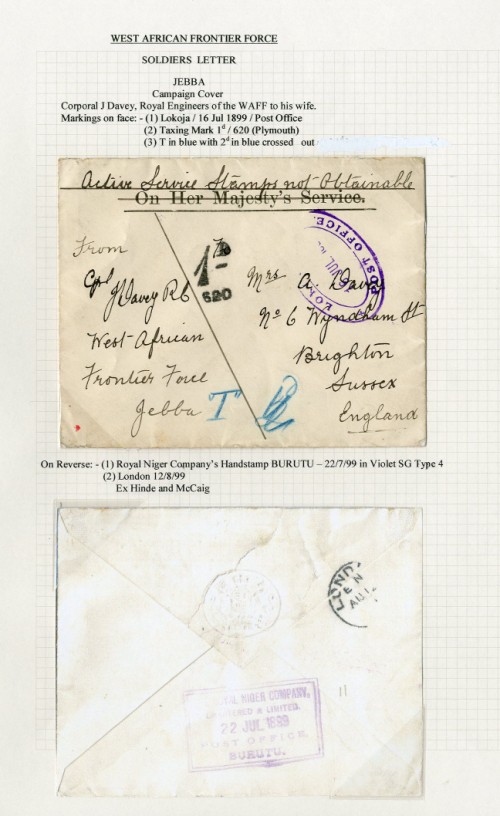 WEST AFRICAN FRONTIER FORCE
SOLDIERS LETTER
JEBBA
Campaign Cover
Corporal J Davey, Royal Engineers of the WAFF to his wife.
Markings on face: - (1) Lokoja / 16 Jul 1899 / Post Office
(2) Taxing Mark 1d / 620 (Plymouth)
(3) T in blue with 2d in blue crossed out
Active Service Stamps not Obtainable
On Her Majesty's Service.
POST OFFICE.
16 JUL
From
To
1D
620
Cpl J Davey RE
West African
Frontier Force
Jebba
T
Mrs A. Davey
No 6 Wyndham St
Brighton
Sussex
England
On Reverse: - (1) Royal Niger Company's Handstamp BURUTU – 22/7/99 in Violet SG Type 4
(2) London 12/8/99
Ex Hinde and McCaig
LOND
EN
AU12
NIGER COMPANY,
& LIMITED.
22 JUL 1899
POST OFFICE
BURUTU.